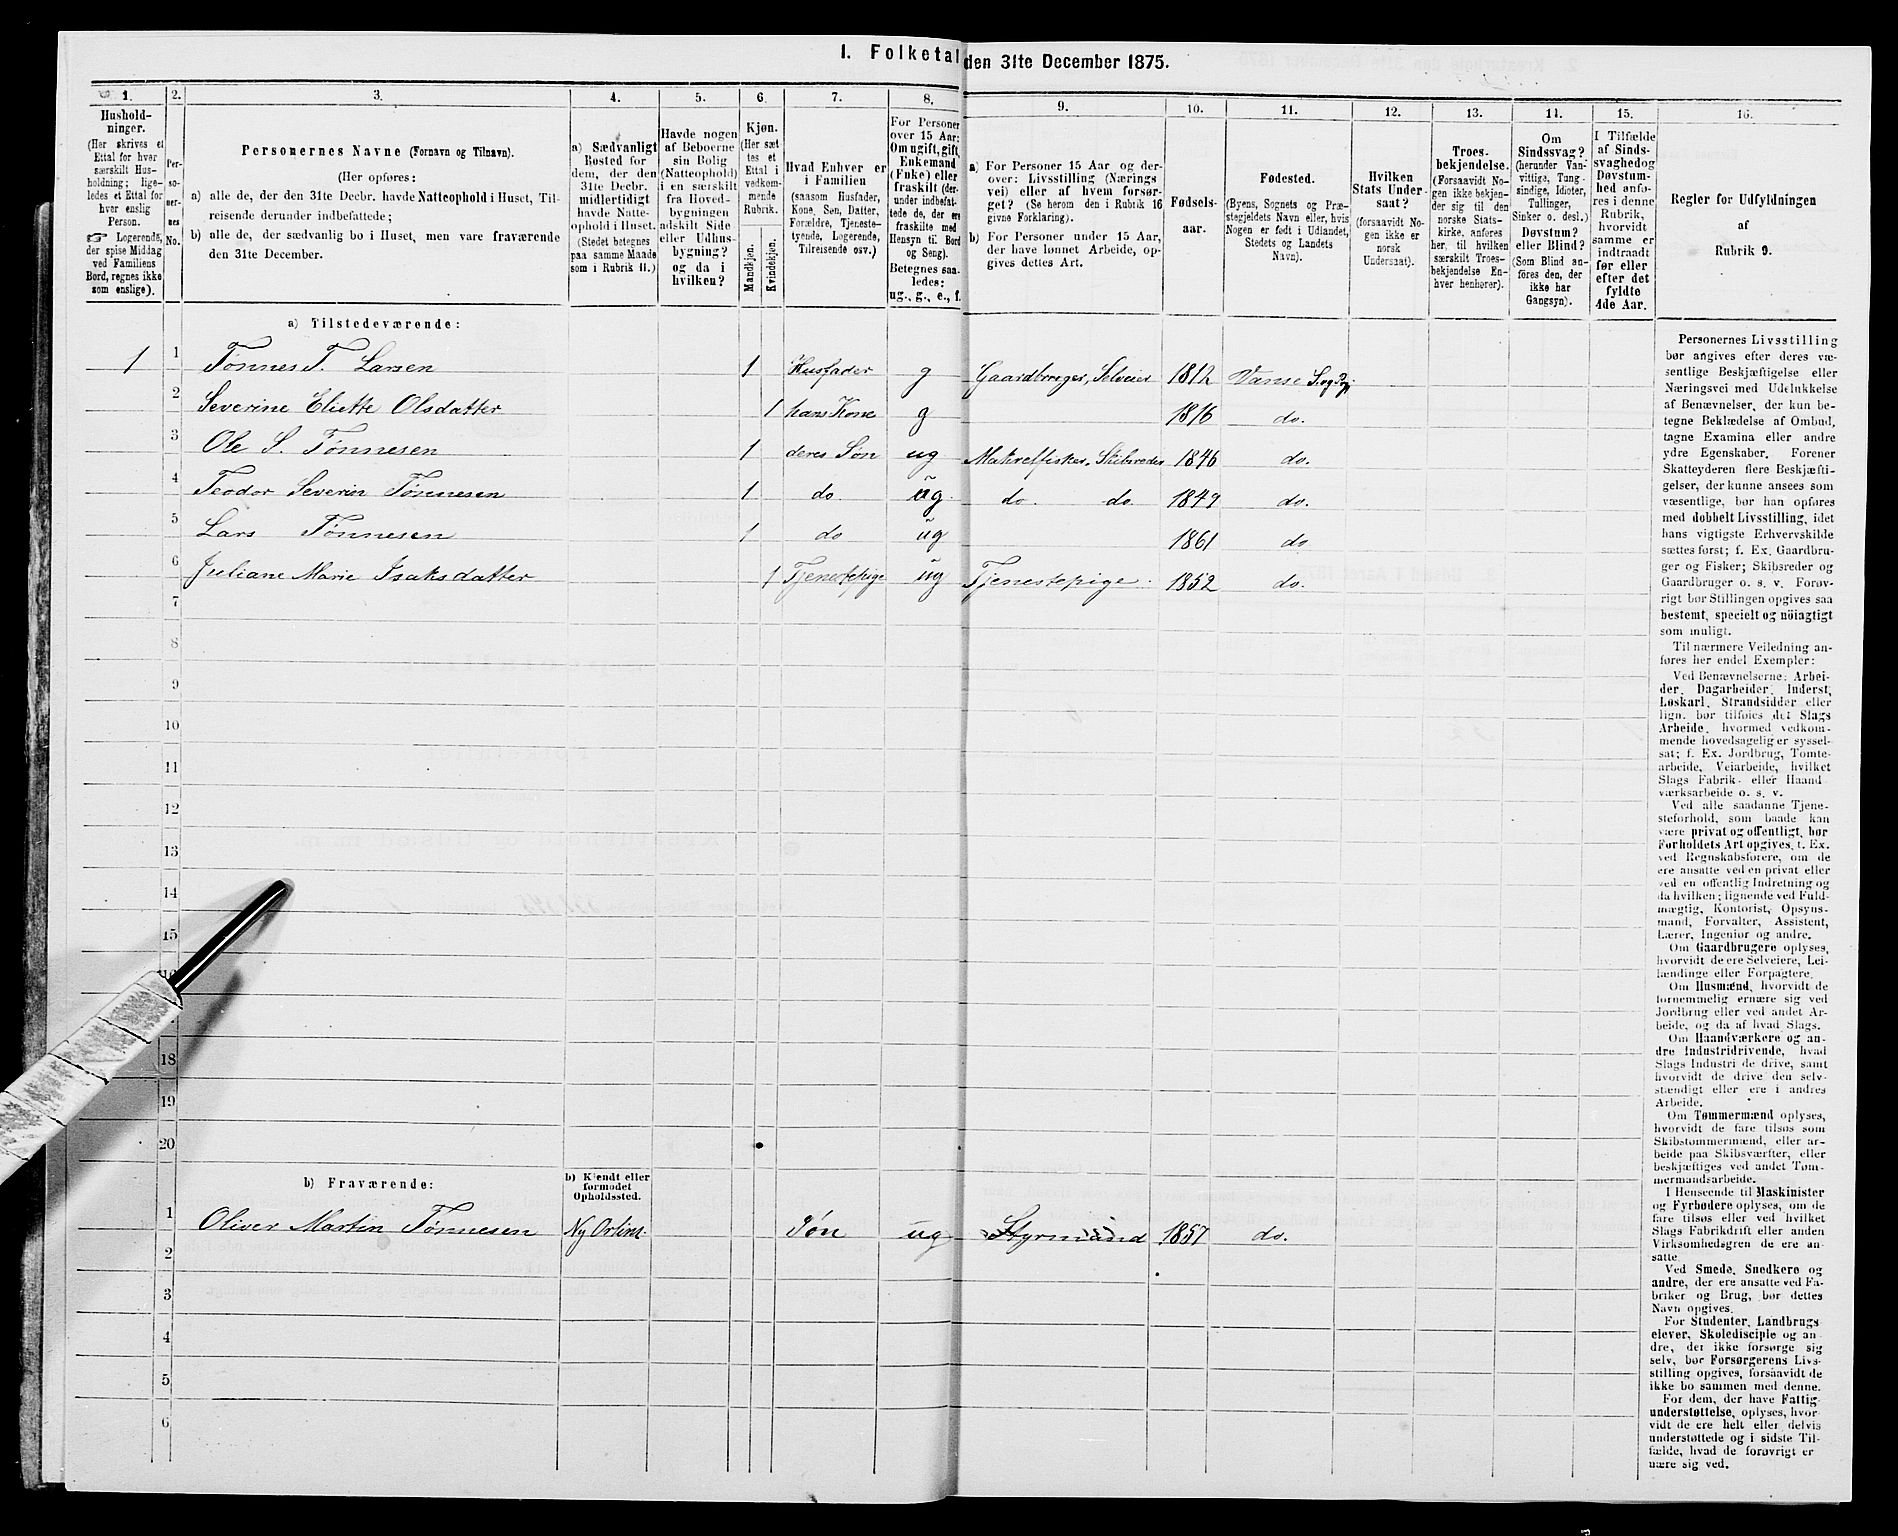 I. Folketal den 31te December 1875.
1. 2. 3. 4. 5. 6. 7. 8. 9. 10. 11. 12. 13. 14. 15. 16.
Hushold-
ninger.
(Her skrives et
Ettal for hver
særskilt Hus-
holdning; lige-
ledes et Ettal for
hver enslig
Person.
☞ Logerende,
der spise Middag
ved Familiens
Bord, regnes ikke
som enslige).
Per-
so-
ner-
nes
No.
Personernes Navne (Fornavn og Tilnavn).
(Her opføres:
a) alle de, der den 31te Decbr. havde Natteophold i Huset, Til-
reisende derunder indbefattede;
b) alle de, der sædvanlig bo i Huset, men vare fraværende
den 31te December.
a) Sædvanligt
Bosted for
dem, der den
31te Decbr.
midlertidigt
havde Natte-
ophold i Huset.
(Stedet betegnes
paa samme Maade
som i Rubrik 11.)
Havde nogen
af Beboerne
sin Bolig
(Natteophold)
i en særskilt
fra Hoved-
bygningen
adskilt Side
eller Udhus-
bygning?
og da i
hvilken?
Kjøn.
(Her sæt
tes et
Ettal i
vedkom-
mende
Rubrik.
Mandkjøn.
Kvindekjøn.
Hvad Enhver er
i Familien
(saasom Husfader,
Kone, Søn, Datter,
Forældre, Tjeneste-
tyende, Logerende,
Tilreisende osv.)
For Personer
over 15 Aar:
Om ugift, gift,
Enkemand
(Enke) eller
fraskilt (der-
under indbefat-
tede de, der ere
fraskilte med
Hensyn til Bord
og Seng).
Betegnes saa-
ledes:
ug., g., e., f.
a) For Personer 15 Aar og der-
over: Livsstilling (Nærings
vei) eller af hvem forsør-
get? (Se herom den i Rubrik 16
givne Forklaring).
b) For Personer under 15 Aar,
der have lønnet Arbeide, op-
gives dettes Art.
Fødsels-
aar.
Fødested.
(Byens, Sognets og Præ-
stegjeldets Navn eller, hvis
Nogen er født i Udlandet,
Stedets og Landets
Navn).
Hvilken
Stats Under-
saat?
(forsaavidt No-
gen ikke er
norsk
Undersaat).
Troes-
bekjendelse.
(Forsaavidt No-
gen ikke bekjen-
der sig til den
norske Stats-
kirke, anføres
her, til hvilken
særskilt Troes-
bekjendelse En-
hver henhører).
Om
Sindssvag?
(herunder Van-
vittige, Tung-
sindige, Idioter,
Tullinger,
Sinker o. desl.)
Døvstum?
eller Blind?
(Som Blind an-
føres den, der
ikke har
Gangsyn).
I Tilfælde
af Sinds-
svaghed og
Døvstum-
hed anfø-
res i denne
Rubrik,
hvorvidt
samme er
indtraadt
før eller
efter det
fyldte
4de Aar.
Regler for Udfyldningen
af
Rubrik 9.
a) Tilstedeværende:
1 1 Tønnes T. Larsen 1 Husfader g Gaardbruger, Selveier 1812 Vanse S. og Pgj.
2 Severine Eliette Olsdatter 1 hans Kone g 1816 do.
3 Ole S. Tønnesen 1 deres Søn ug Makrelfisker, Skibsreder 1846 do.
4 Teodor Severin Tønnesen 1 do. ug. do. do. 1849 do.
5 Lars Tønnesen 1 do ug 1861 do
6 Juliane Marie Isaksdatter 1 Tjenestepige ug Tjenestepige. 1852 do.
7
8
9
10
11
12
13
14
15
18
19
20
b) Fraværende:
b) Kjendt eller
formodet
Opholdssted.
1 Oliver Martin Tønnesen Ny Orlins. Søn ug Styrmand 1857 do.
2
3
4
5
6
Personernes Livsstilling
bør angives efter deres væ-
sentlige Beskjæftigelse eller
Næringsvei med Udelukkelse
af Benævnelser, der kun be-
tegne Beklædelse af Ombud,
tagne Examina eller andre
ydre Egenskaber. Forener
Skatteyderen flere Beskjæfti-
gelser, der kunne ansees som
væsentlige, bør han opføres
med dobbelt Livsstilling, idet
hans vigtigste Erhvervskilde
sættes først; f. Ex. Gaardbru-
ger og Fisker; Skibsreder og
Gaardbruger o. s. v. Forøv-
rigt bør Stillingen opgives saa
bestemt, specielt og nöiagtigt
som muligt.
Til nærmere Veiledning an-
føres her endel Exempler:
Ved Benævnelserne: Arbei-
der, Dagarbeider, Inderst,
Løskarl, Strandsidder eller
lign. bør tilføies det Slags
Arbeide, hvormed vedkom-
mende hovedsagelig er syssel-
sat; f. Ex. Jordbrug, Tomte-
arbeide, Veiarbeide, hvilket
Slags Fabrik- eller Haand
værksarbeide o. s. v.
Ved alle saadanne Tjene-
steforhold, som baade kan
være privat og offentligt, bør
Forholdets Art opgives, t. Ex.
ved Regnskabsførere, om de
ere ansatte ved en privat eller
ved en offentlig Indretning og
da hvilken; lignende ved Fuld-
mægtig, Kontorist, Opsyns-
mand, Forvalter, Assistent,
Lærer, Ingeniør og andre.
Om Gaardbrugere oplyses,
hvorvidt de ere Selveiere, Lei-
lændinge eller Forpagtere.
Om Husmænd, hvorvidt de
fornemmelig ernære sig ved
Jordbrug eller ved andet Ar-
beide, og da af hvad Slags.
Om Haandværkere og an-
dre Industridrivende, hvad
Slags Industri de drive, samt
hvorvidt de drive den selv-
stændigt eller ere i andres
Arbeide.
Om Tømmermænd oplyses,
hvorvidt de fare tilsøs som
Skibstømmermænd, eller ar-
beide paa Skibsværfter, eller
beskjæftiges ved andet Tøm-
mermandsarbeide.
I Henseende til Maskinister
og Fyrbødere oplyses, om de
fare tilsøs eller ved hvilket
Slags Fabrikdrift eller anden
Virksomhedsgren de ere an-
satte.
Ved Smede, Snedkere og
andre, der ere ansatte ved Fa-
briker og Brug, bør dettes
Navn opgives.
For Studenter, Landbrugs
elever, Skoledisciple og an
dre, der ikke forsørge sig
selv, bør Forsørgerens Livs-
stilling opgives, forsaavidt de
ikke bo sammen med denne.
For dem, der have Fattig-
understøttelse, oplyses, hvor
vidt de ere helt eller delvis
understøttede og i sidste Til-
fælde, hvad de forøvrigt er
nære sig ved.